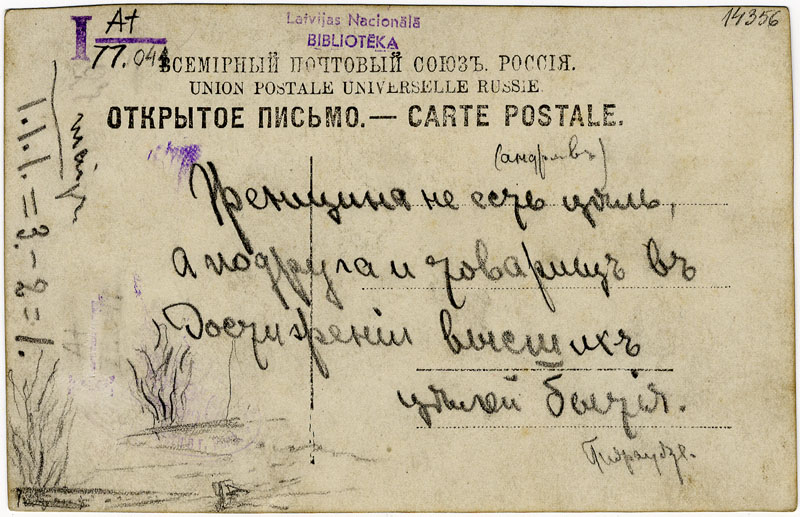 I At
77.04
Latvijas Nacionālā
BIBLIOTĒKA
14356
ВСЕМІРНЫЙ ПОЧТОВЫЙ СОЮЗЪ. РОССІЯ.
UNION POSTALE UNIVERSELLE RUSSIE.
ОТКРЫТОЕ ПИСЬМО.— CARTE POSTALE.
Женщина не есть цѣль,
а подруга и товарищъ въ
Достиженіи высшихъ
цѣлей бытія.
1.1.1. = 3. - 2 = 1.